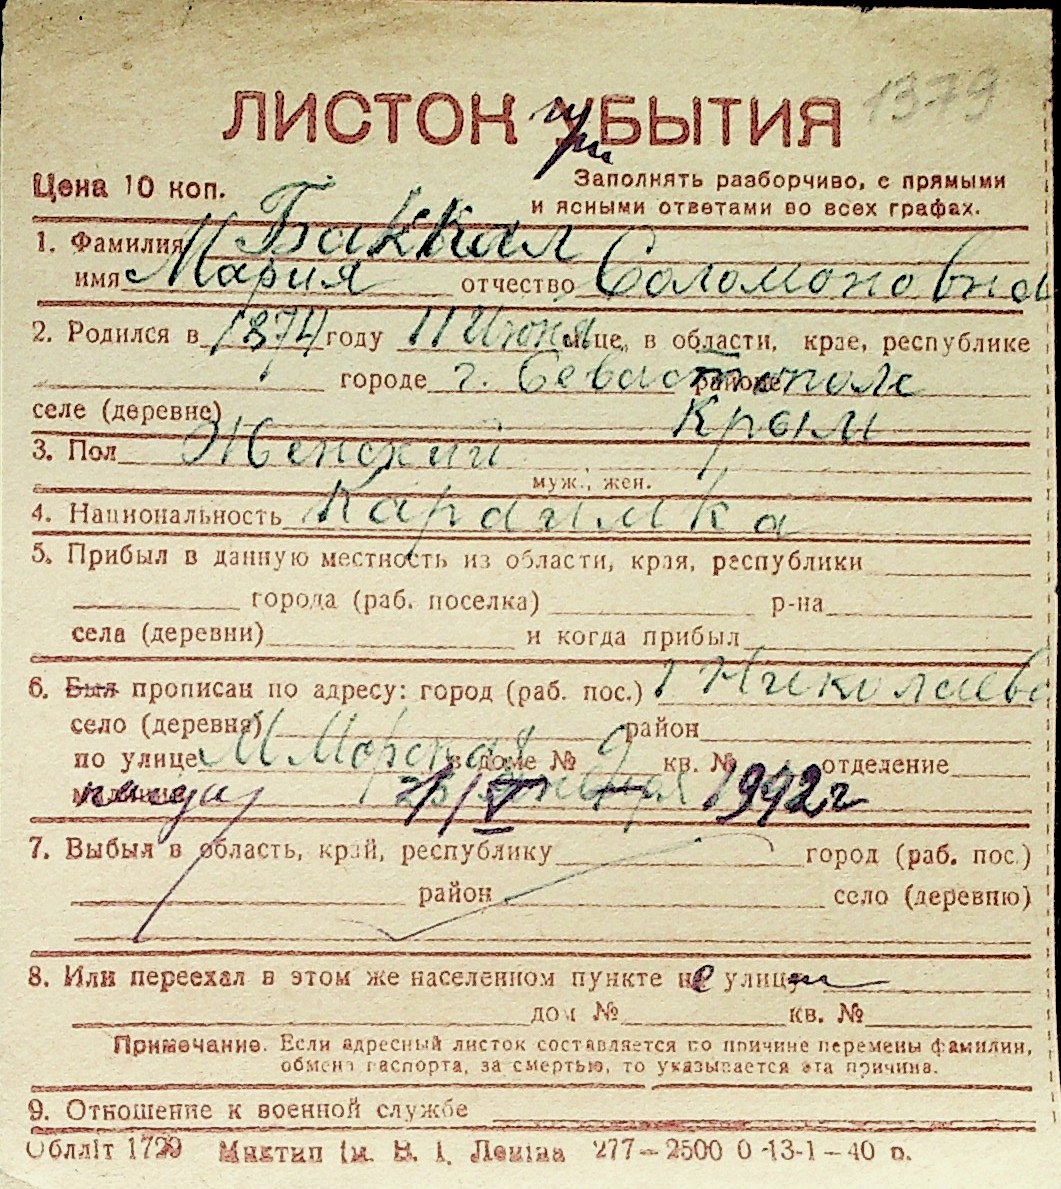 1379
ЛИСТОК при УБЫТИЯ
Цена 10 коп.
Заполнять разборчиво, с прямыми
и ясными ответами во всех графах.
1. Фамилия Баккал
имя Мария отчество Соломоновна
2. Родился в 1874 году 11 Июня м-це, в области, крае, республике
городе г. Севастополе районе
селе (деревне) Крым
3. Пол Женский
муж., жен.
4. Национальность Караимка
5. Прибыл в данную местность из области, края, республики
города (раб. поселка) р-на
села (деревни) и когда прибыл
6. Был прописан по адресу: город (раб. пос.) г Николаев
село (деревня) район
по улице М Морская в доме № 9 кв. № отделение
1942г
7. Выбыл в область, край, республику город (раб. пос.)
район село (деревню)
8. Или переехал в этом же населенном пункте не улицы
дом № кв. №
Примечание. Если адресный листок составляется по причине перемены фамилии,
обмена паспорта, за смертью, то указывается эта причина.
9. Отношение к военной службе
Облліт 1729 Миктип ім. В. І. Леніна 277—2500 0 -13-1—40 р.